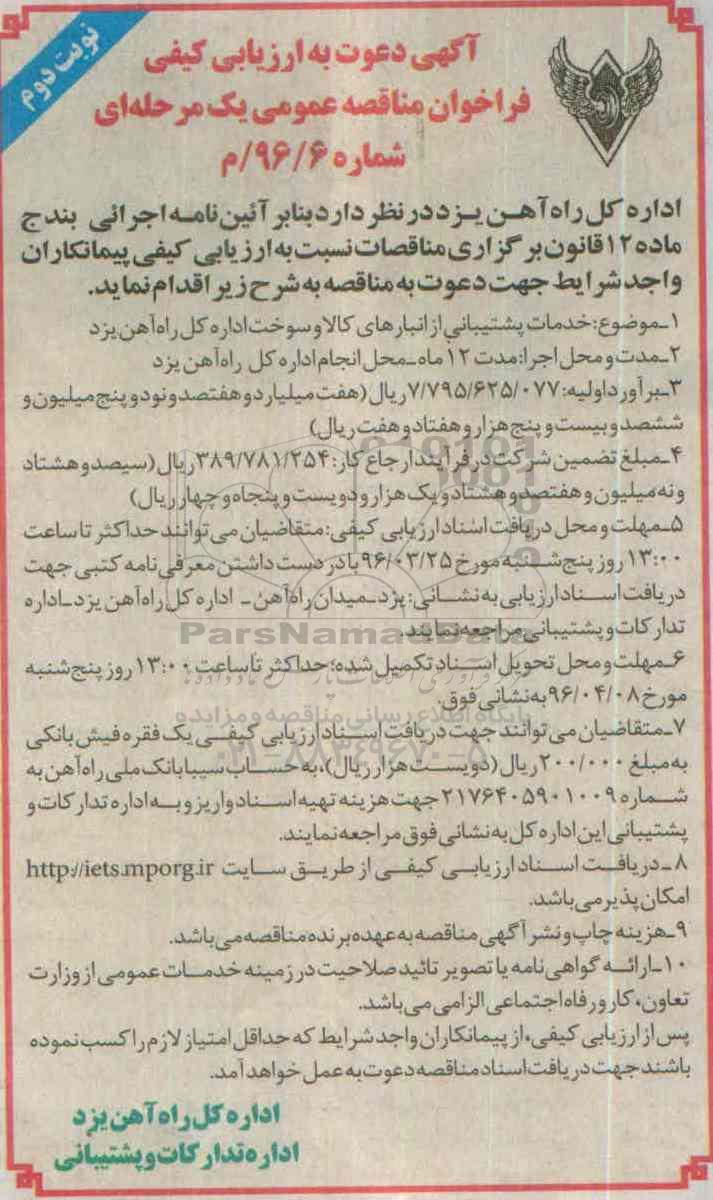 نوبت دوم
آگهی دعوت به ارزیابی کیفی
فراخوان مناقصه عمومی یک مرحله‌ای
شماره ۹۶/۶/م
اداره کل راه آهن یزد در نظر دارد بنابر آئین نامه اجرائی بند ج
ماده ۱۲ قانون برگزاری مناقصات نسبت به ارزیابی کیفی پیمانکاران
واجد شرایط جهت دعوت به مناقصه به شرح زیر اقدام نماید.
۱ـ موضوع: خدمات پشتیبانی از انبارهای کالا و سوخت اداره کل راه آهن یزد
۲ـ مدت و محل اجرا: مدت ۱۲ ماه ـ محل انجام اداره کل راه آهن یزد
۳ـ برآورد اولیه: ۷/۷۹۵/۶۲۵/۰۷۷ ریال (هفت میلیارد و هفتصد و نود و پنج میلیون و
ششصد و بیست و پنج هزار و هفتاد و هفت ریال)
۴ـ مبلغ تضمین شرکت در فرآیند ارجاع کار: ۳۸۹/۷۸۱/۲۵۴ ریال (سیصد و هشتاد
و نه میلیون و هفتصد و هشتاد و یک هزار و دویست و پنجاه و چهار ریال)
۵ـ مهلت و محل دریافت اسناد ارزیابی کیفی: متقاضیان می توانند حداکثر تا ساعت
۱۳:۰۰ روز پنج شنبه مورخ ۹۶/۰۳/۲۵ با در دست داشتن معرفی نامه کتبی جهت
دریافت اسناد ارزیابی به نشانی: یزد ـ میدان راه آهن ـ اداره کل راه آهن یزد ـ اداره
تدارکات و پشتیبانی مراجعه نمایند.
ParsNamadData
۶ـ مهلت و محل تحویل اسناد تکمیل شده: حداکثر تا ساعت ۱۳:۰۰ روز پنج شنبه
مورخ ۹۶/۰۴/۰۸ به نشانی فوق.
پایگاه اطلاع رسانی مناقصه و مزایده
۷ـ متقاضیان می توانند جهت دریافت اسناد ارزیابی کیفی یک فقره فیش بانکی
۰۲۱-۸۸۳۴۹۶۷۰-۵
به مبلغ ۲۰۰/۰۰۰ ریال (دویست هزار ریال)، به حساب سیبا بانک ملی راه آهن به
شماره ۲۱۷۶۴۰۵۹۰۱۰۰۹ جهت هزینه تهیه اسناد واریز و به اداره تدارکات و
پشتیبانی این اداره کل به نشانی فوق مراجعه نمایند.
۸ ـ دریافت اسناد ارزیابی کیفی از طریق سایت http://iets.mporg.ir
امکان پذیر می باشد.
۹ـ هزینه چاپ و نشر آگهی مناقصه به عهده برنده مناقصه می باشد.
۱۰ـ ارائه گواهی نامه یا تصویر تائید صلاحیت در زمینه خدمات عمومی از وزارت
تعاون، کار و رفاه اجتماعی الزامی می باشد.
پس از ارزیابی کیفی، از پیمانکاران واجد شرایط که حداقل امتیاز لازم را کسب نموده
باشند جهت دریافت اسناد مناقصه دعوت به عمل خواهد آمد.
اداره کل راه آهن یزد
اداره تدارکات و پشتیبانی